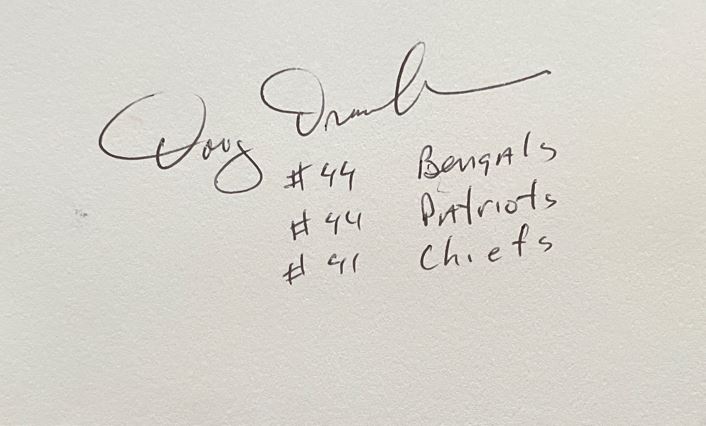 Doug
#44 Bengals
#44 Patriots
#41 Chiefs